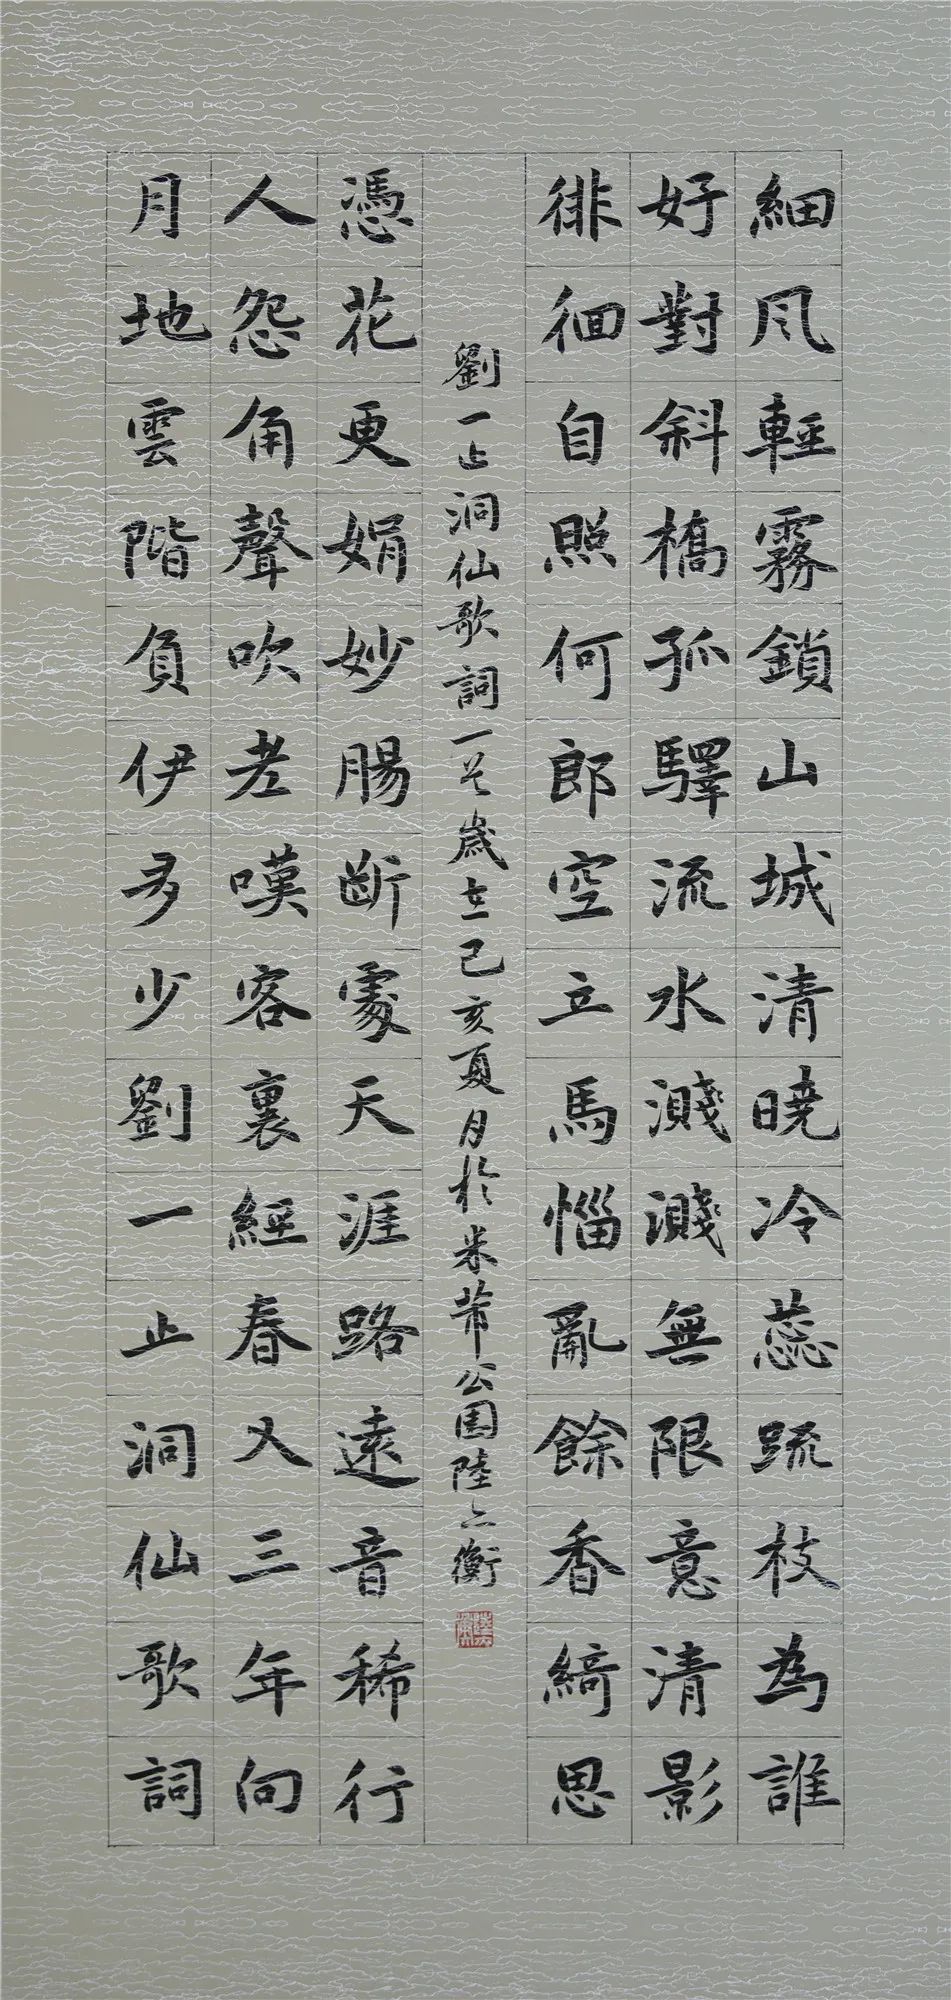 細風輕霧鎖山城清曉冷蕊疏枝為誰
好對斜橋孤驛流水濺濺無限意清影
徘徊自照何郎空立馬惱亂餘香綺思
劉一止洞仙歌詞一首歲在己亥夏月於米芾公園陸衡
憑花更娟妙腸斷處天涯路遠音稀行
人怨角聲吹老嘆客裏經春又三年向
月地雲階負伊多少劉一止洞仙歌詞